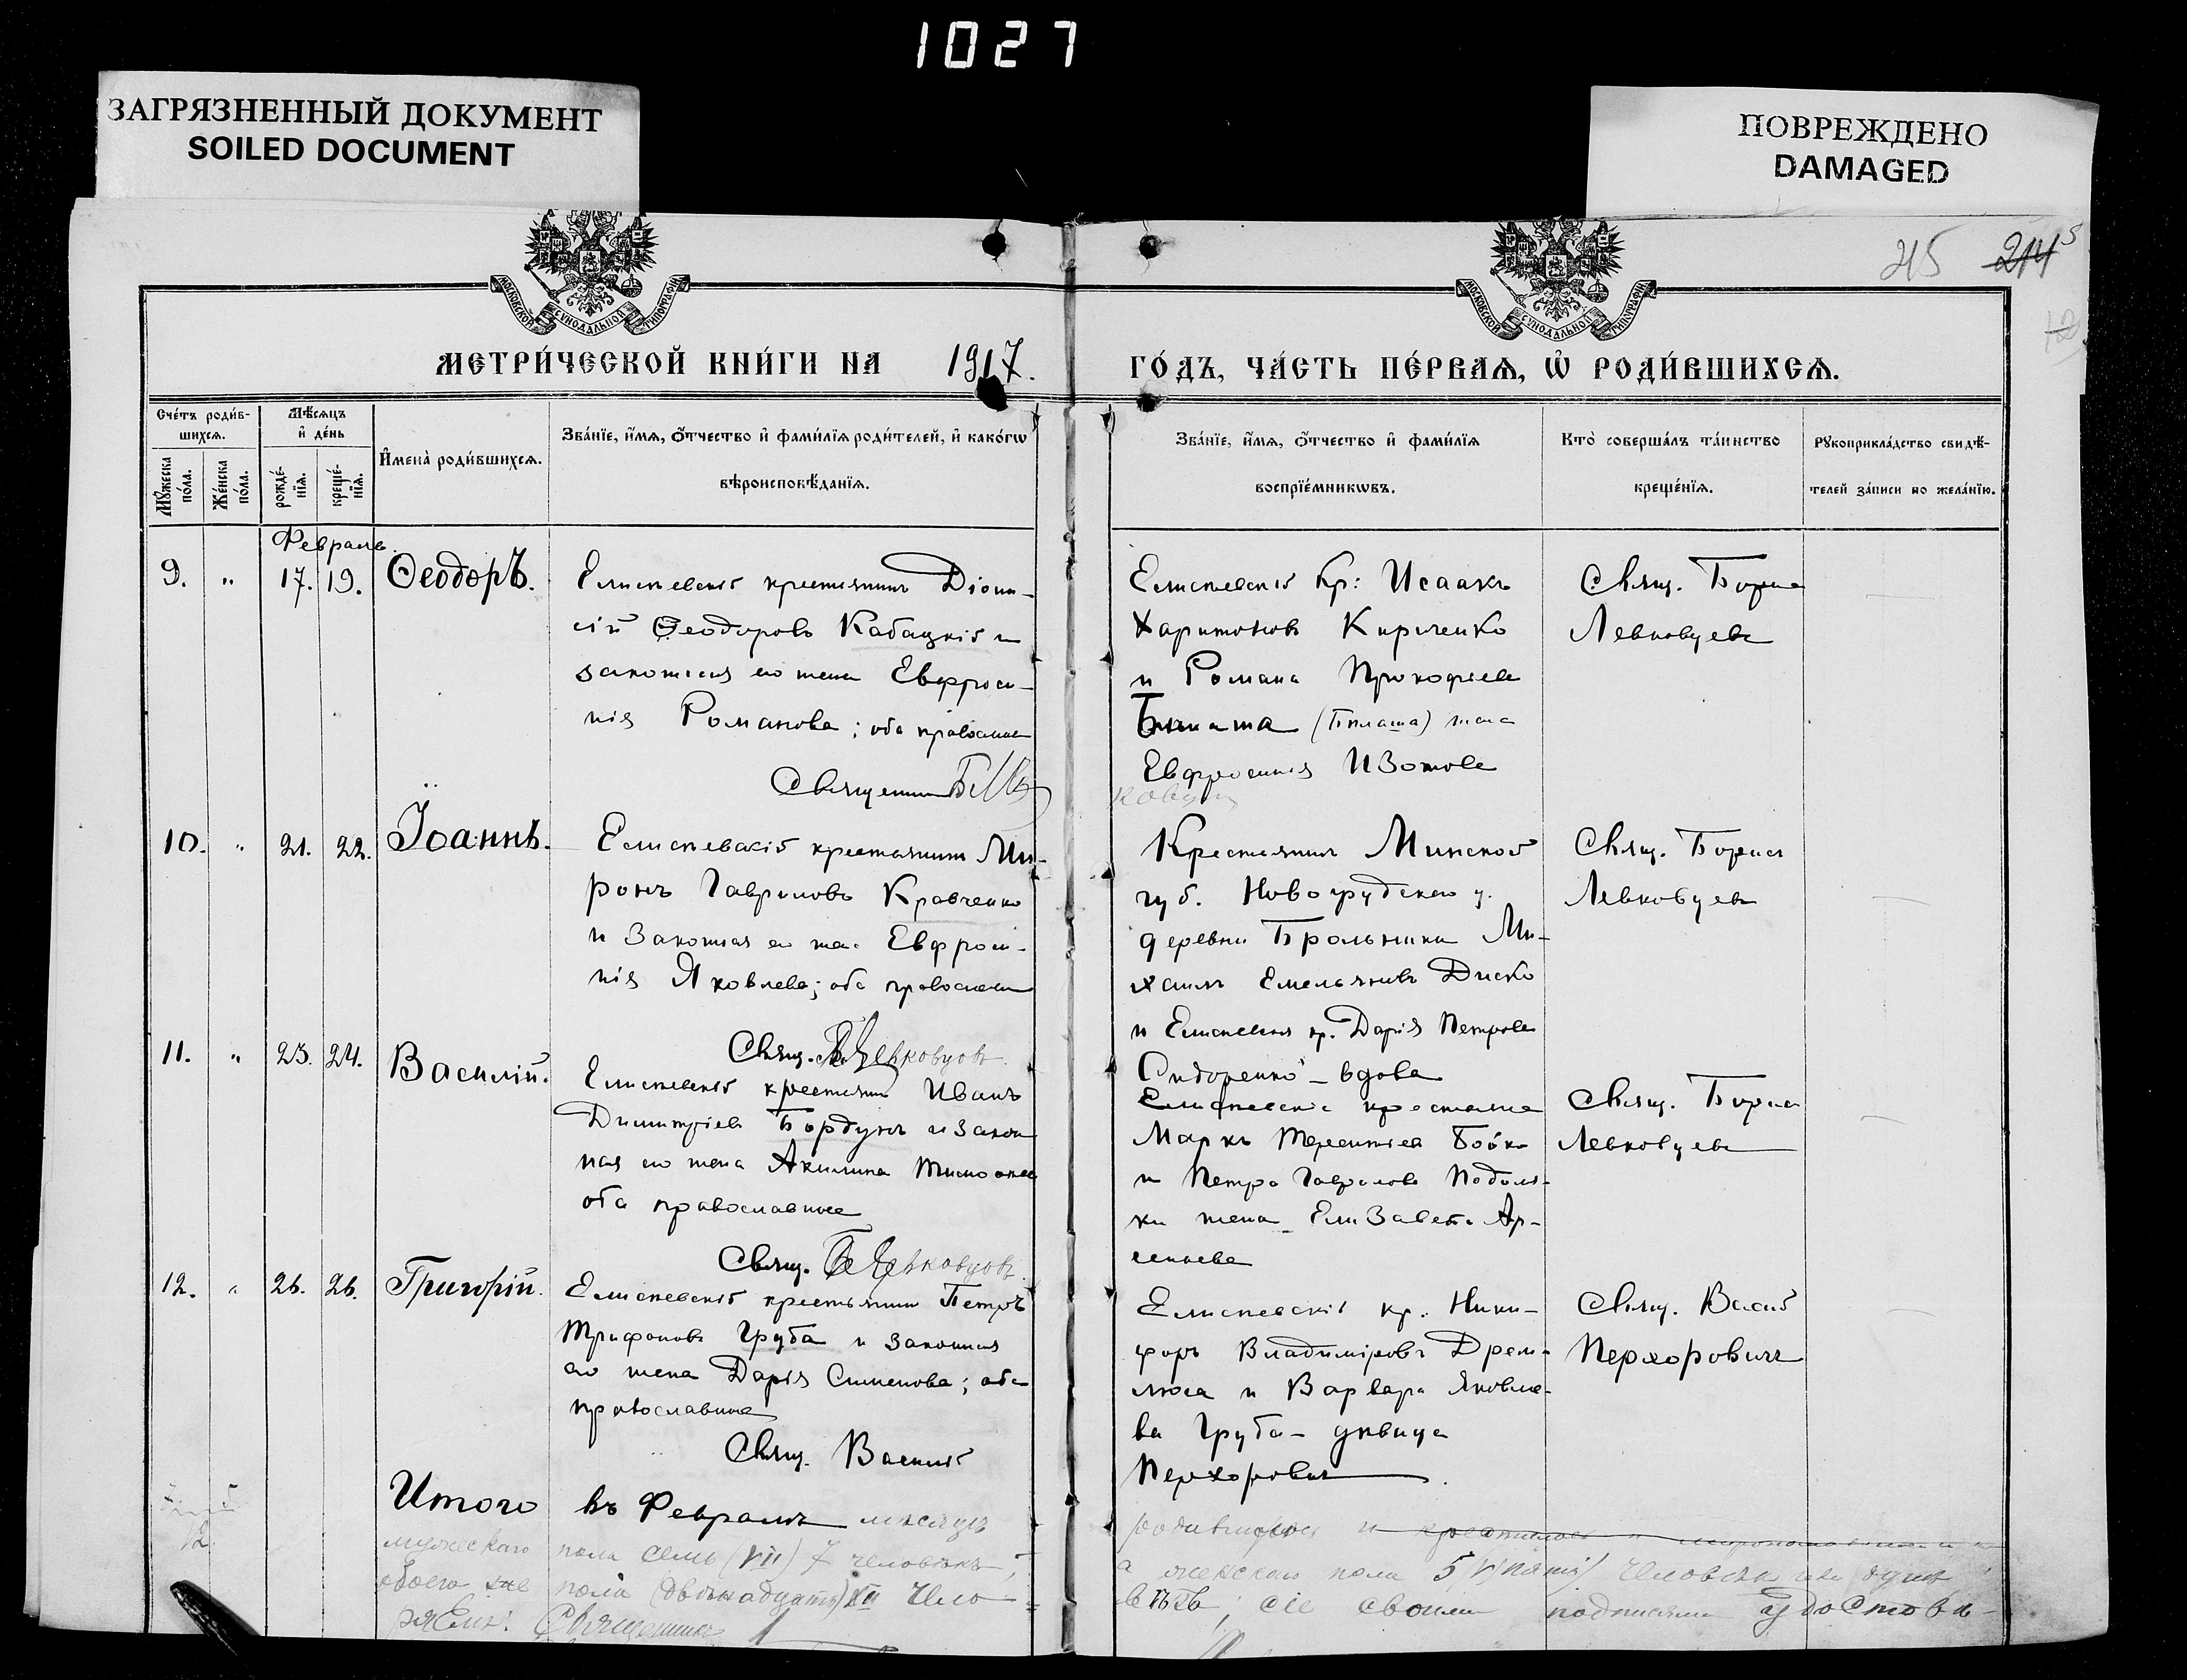 1027
ЗАГРЯЗНЕННЫЙ ДОКУМЕНТ
SOILED DOCUMENT
ПОВРЕЖДЕНО
DAMAGED
45 214 5
МОСКОВСКОЙ СУНОДАЛЬНОЙ ТИПОГРАФІИ
МОСКОВСКОЙ СУНОДАЛЬНОЙ ТИПОГРАФІИ
МЕТРИ́ЧЕСКОЙ КНИ́ГИ НА 1917.
ГО́ДЪ, ЧА́СТЬ ПЕ́РВАѦ, Ѡ҆ РОДИ́ВШИХСѦ.
Сче́тъ роди́в-
шихсѧ.
Мѣ́сѧцъ
и҆ де́нь
Мꙋ́жеска
по́ла.
Же́нска
по́ла.
рожде́-
нїѧ.
креще́-
нїѧ.
И҆мена̀ роди́вшихсѧ.
Зва́нїе, и҆́мѧ, ѻ҆́тчество и҆ фами́лїѧ роди́телей, и҆ како́гѡ
вѣроисповѣ́данїѧ.
Зва́нїе, и҆́мѧ, ѻ҆́тчество и҆ фами́лїѧ
воспрїе́мникѡвъ.
Кто̀ соверша́лъ та́инство
креще́нїѧ.
Рꙋкоприкла́дство свидѣ́-
телей за́писи по жела́нїю.
Февраль.
9. " 17. 19. Ѳеодоръ.
Елисѣевскій крестьянинъ Діони-
сій Ѳеодоровъ Кабацкій и
законная его жена Евфроси-
нія Романова; оба православные
Священникъ
Елисѣевскій кр: Исаакъ
Харитоновъ Кириченко
и Романа Прокофіева
(Билаша) жена
Евфросинія Изотова
Свящ. Борисъ
Левковцевъ
10. " 21. 22. Іоаннъ.
Елисѣевскій крестьянинъ Ми-
ронъ Гавриловъ Кравченко
и законная его жена Евфроси-
нія Яковлева; оба православные
Свящ. Б. Левковцевъ
Крестьянинъ Минской
губ. Новогрудскаго у.
деревни Брольники Ми-
хаилъ Емельяновъ Диско
и Елисѣевская кр. Дарія Петрова
Сидоренко - вдова
Свящ. Борисъ
Левковцевъ
11. " 23. 24. Василій.
Елисѣевскій крестьянинъ Иванъ
Димитріевъ Бордунъ и закон
ная его жена Акилина
оба православные
Свящ. Б Левковцовъ.
Елисѣевскіе крестьяне
Маркъ Терентіевъ Бойко
и Петра Гаврилова Подоля-
ки жена Елизавета Ар-
сеньева
Свящ. Борисъ
Левковцевъ
12. " 26. 26. Григорій.
Елисѣевскій крестьянинъ Петръ
Трифоновъ Груба и законная
его жена Дарія Симеонова; оба
православные
Свящ. Василій
Елисѣевскій кр. Ники-
форъ Владиміровъ Дрем-
люга и Варвара Яковле-
ва Груба - дѣвица
Перхоровичъ
Свящ. Васил
Перхоровичъ
12
Итого въ Февралѣ мѣсяцѣ
родившихся и
мужескаго пола семь (VII) 7 человѣкъ,
а женскаго пола 5 (V пять) человѣкъ
обоего пола (двѣнадцать) XII чело-
вѣкъ; сіе своими подписями удостовѣ-
ряемъ: Священникъ